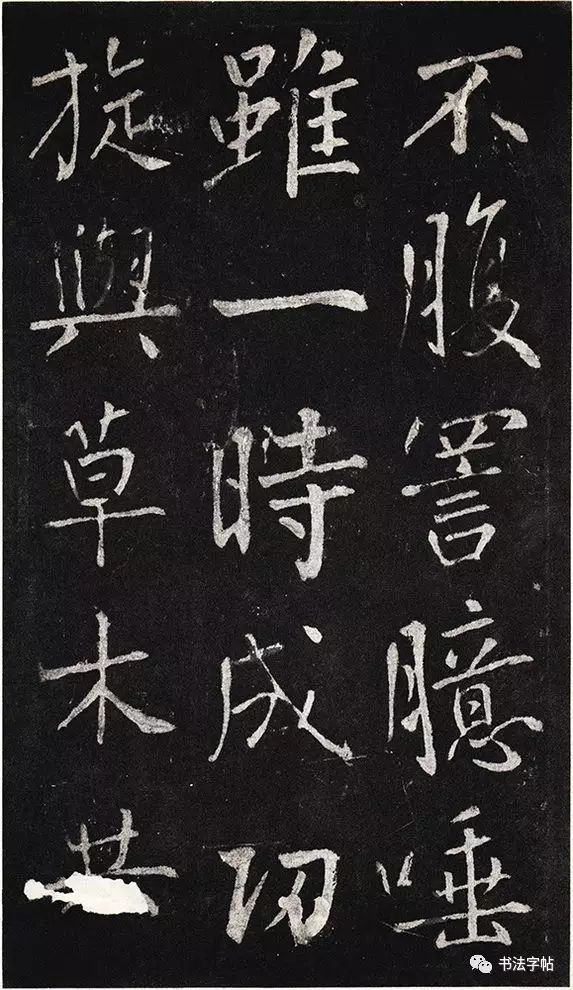 不腹詈臆唾
雖一時成功
旋與草木共
书法字帖